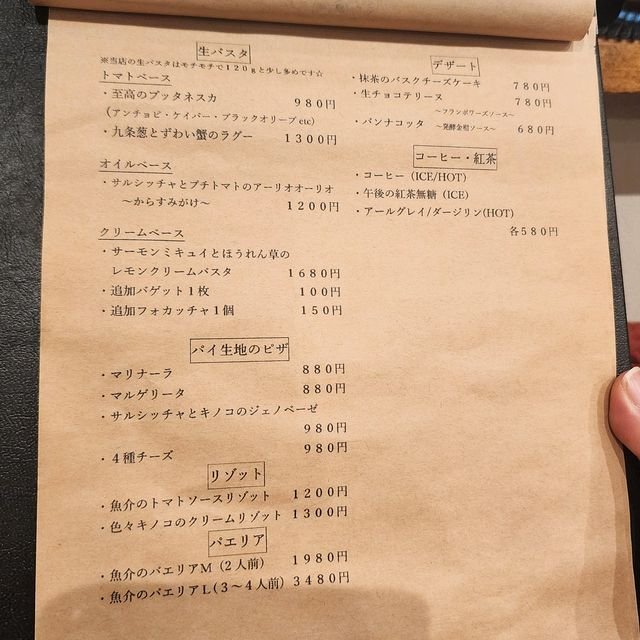 生パスタ
※当店の生パスタはモチモチで120gと少し多めです☆
トマトベース
・至高のプッタネスカ 980円
（アンチョビ・ケイパー・ブラックオリーブetc）
・九条葱とずわい蟹のラグー 1300円
オイルベース
・サルシッチャとプチトマトのアーリオオーリオ
～からすみがけ～ 1200円
クリームベース
・サーモンミキュイとほうれん草の
レモンクリームパスタ 1680円
・追加バゲット1枚 100円
・追加フォカッチャ1個 150円
パイ生地のピザ
・マリナーラ 880円
・マルゲリータ 880円
・サルシッチャとキノコのジェノベーゼ
980円
・4種チーズ 980円
リゾット
・魚介のトマトソースリゾット 1200円
・色々キノコのクリームリゾット 1300円
パエリア
・魚介のパエリアM（2人前） 1980円
・魚介のパエリアL(3～4人前) 3480円
デザート
・抹茶のバスクチーズケーキ 780円
・生チョコテリーヌ 780円
～フランボワーズソース～
・パンナコッタ ～発酵金柑ソース～ 680円
コーヒー・紅茶
・コーヒー（ICE/HOT）
・午後の紅茶無糖（ICE）
・アールグレイ/ダージリン(HOT)
各580円